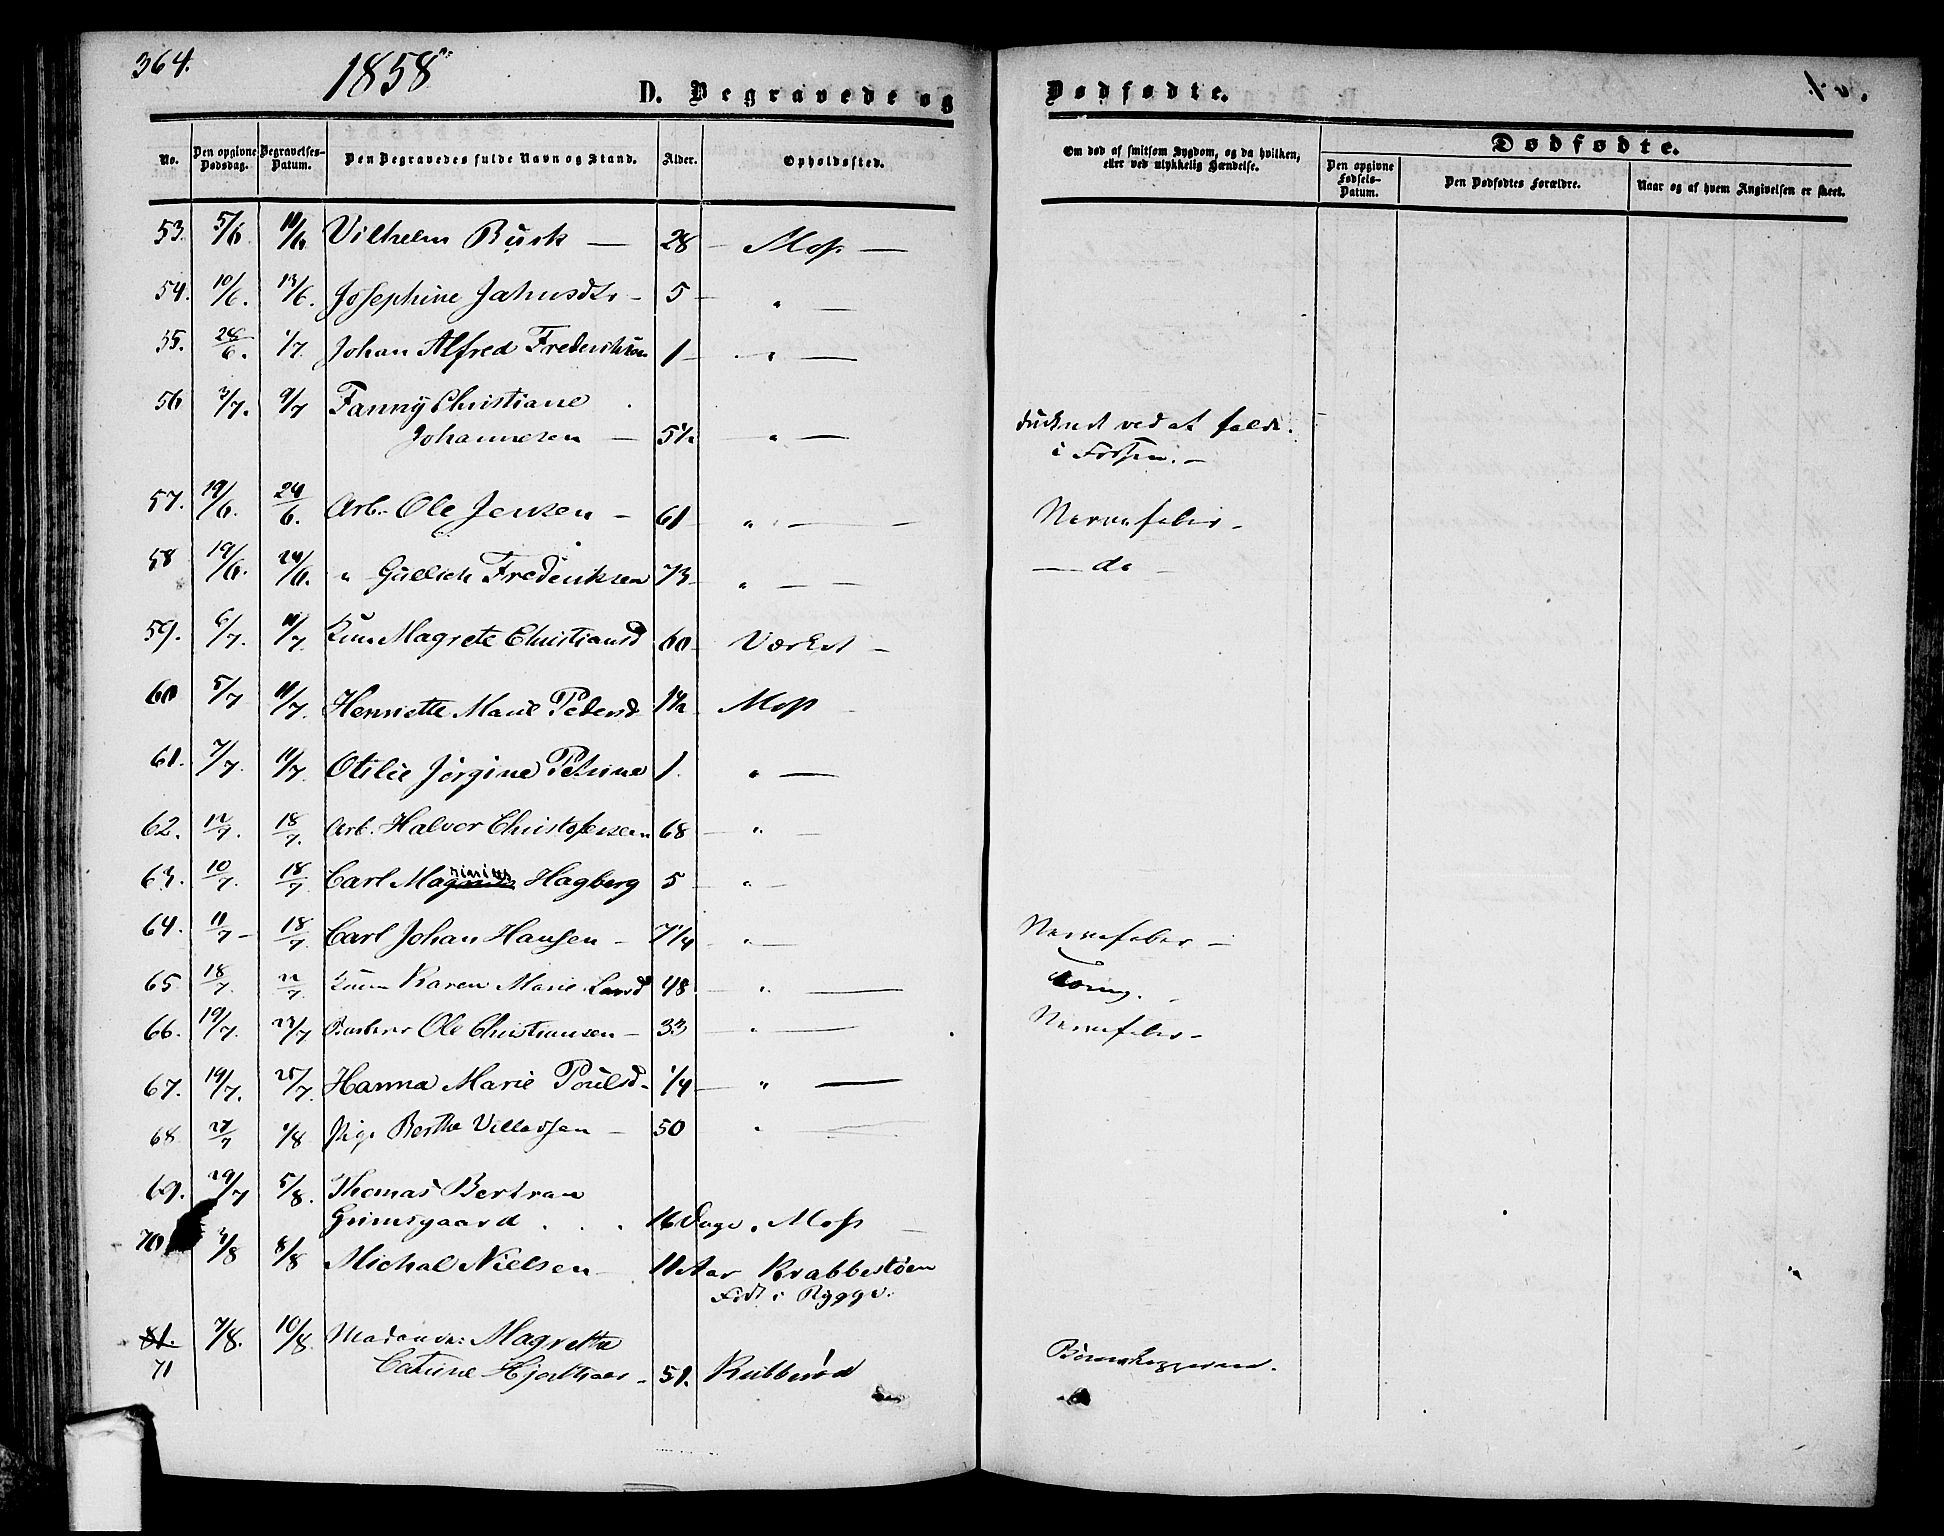 364.
1858
D. Begravede og Dødfødte.
No. Den opgivne Dødsdag. Begravelses-Datum. Den Begravedes fulde Navn og Stand. Alder. Opholdssted. Om død af smitsom Sygdom, og da hvilken, eller ved ulykkelig Hændelse. Dødfødte.
Den opgivne Fødsels-Datum. Den Dødfødtes Forældre. Naar og af hvem Angivelsen er skeet.
53. 5/6 11/6. Vilhelm Busk — 28 — Moss —
54. 10/6. 13/6. Josephine Jahnsdtr — 5 — " —
55. 28/6. 1/7. Johan Alfred Frederiksen 1 — " —
56 3/7. 9/7 Fanny Christiane
Johannesen — 5½ — " — druknet ved at falde
i Fossen. —
57. 19/6. 24/6. Arb. Ole Jensen — 61 — " — Nervefeber —
58 19/6. 24/6. " Gullich Frederiksen 73 — " — — do —
59. 6/7. 11/7. Kone Magrete Christiansd 60 — Værket —
60 5/7 11/7. Henriette Marie Pedersd 1½ — Moss
61. 7/7. 11/7. Otilie Jørgine Petrine 1. " —
62. 12/7. 18/7. Arb. Halvor Christofersen 68 — " —
63. 10/7. 18/7 Carl Hagberg 5 — " —
64. 11/7 — 18/7. Carl Johan Hansen — 7¼ — " — Nervefeber —
65 18/7. 22/7 Kone Karen Marie 48 — " — Tæring.
66. 19/7. 23/7 Ole Christiansen — 33 — " — Nervefeber —
67. 19/7. 25/7 Hanna Marie Poulsd — ¼ — " —
68. 27/7 1/8 Pige Berthe Villadsen — 50 " —
69. 29/7 5/8. Thomas Bertran
Grimsgaard . . . 16 Dage. Moss —
70 3/8 8/8 Michal Nielsen — 11 Aar Krabbestøen
Født i Rygge.
81. 7/8. 10/8. Madame Magrethe
71 Catrine — 51. Rubberød